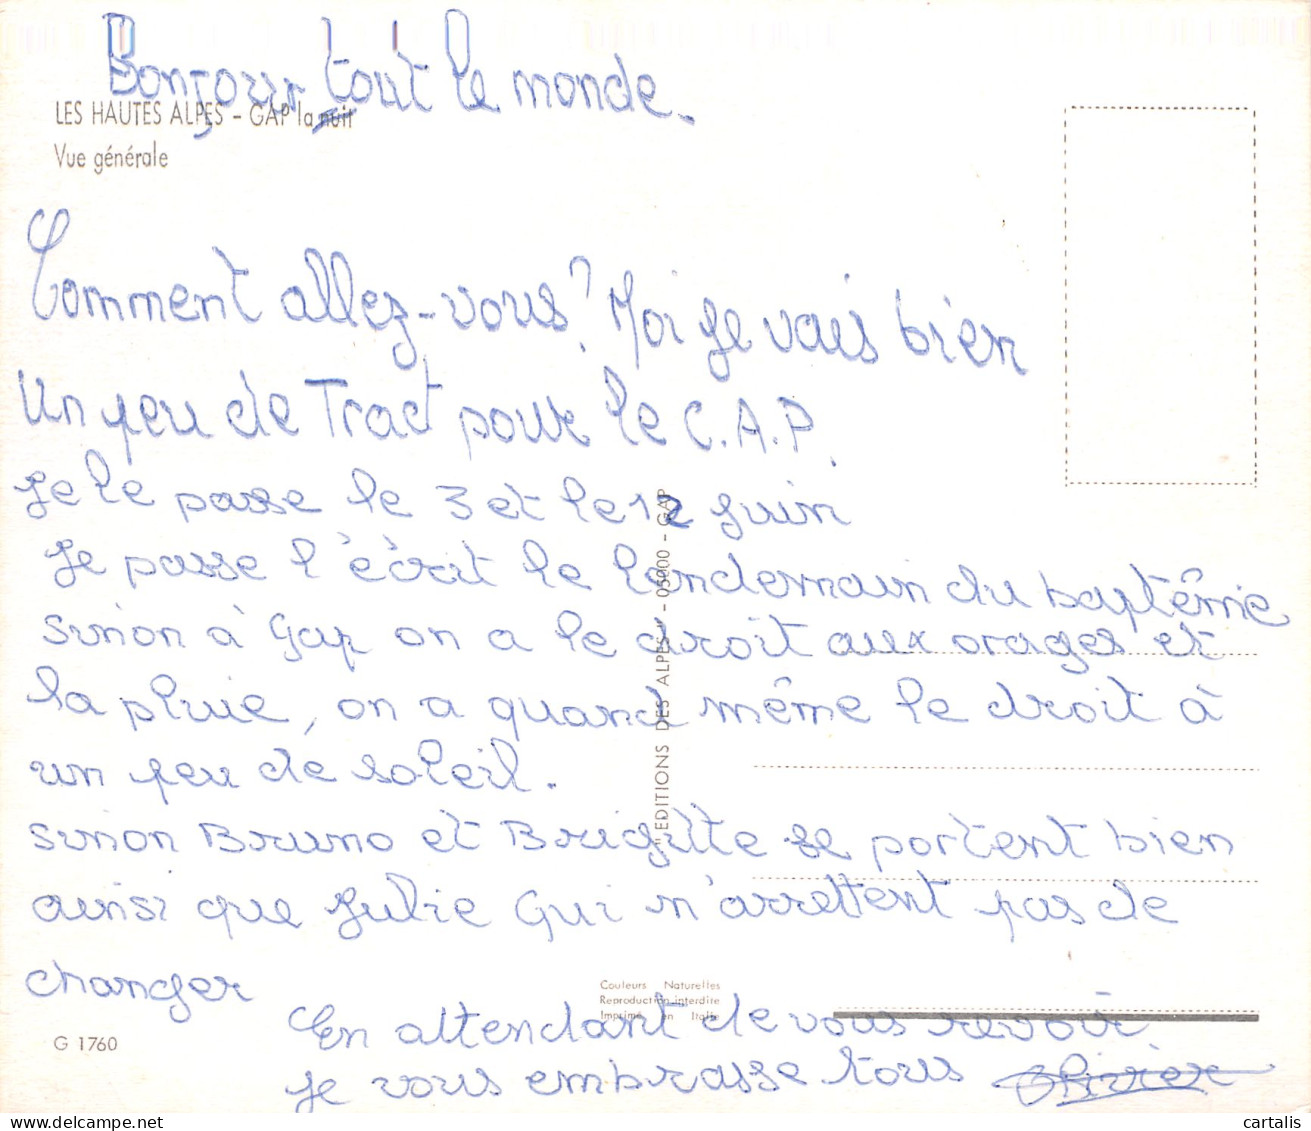 Bonjour tout le monde.
LES HAUTES ALPES - GAP la nuit
Vue générale
Comment allez-vous? Moi je vais bien
Un peu de Tract pour le C.A.P.
Je le passe le 3 et le 12 juin
Je passe l'écrit le londemain du baptême
sinon à Gap on a le droit aux orages et
la pluie, on a quand même le droit à
un peu de soleil.
sinon Bruno et Brigitte se portent bien
ainsi que Julie Qui n'arrettent pas de
changer
En attendant de vous revoir
je vous embrasse tous Olivier
EDITIONS DES ALPES - 05000 - GAP
Couleurs Naturelles
Reproduction interdite
Imprimé en Italie
G 1760
cartalis